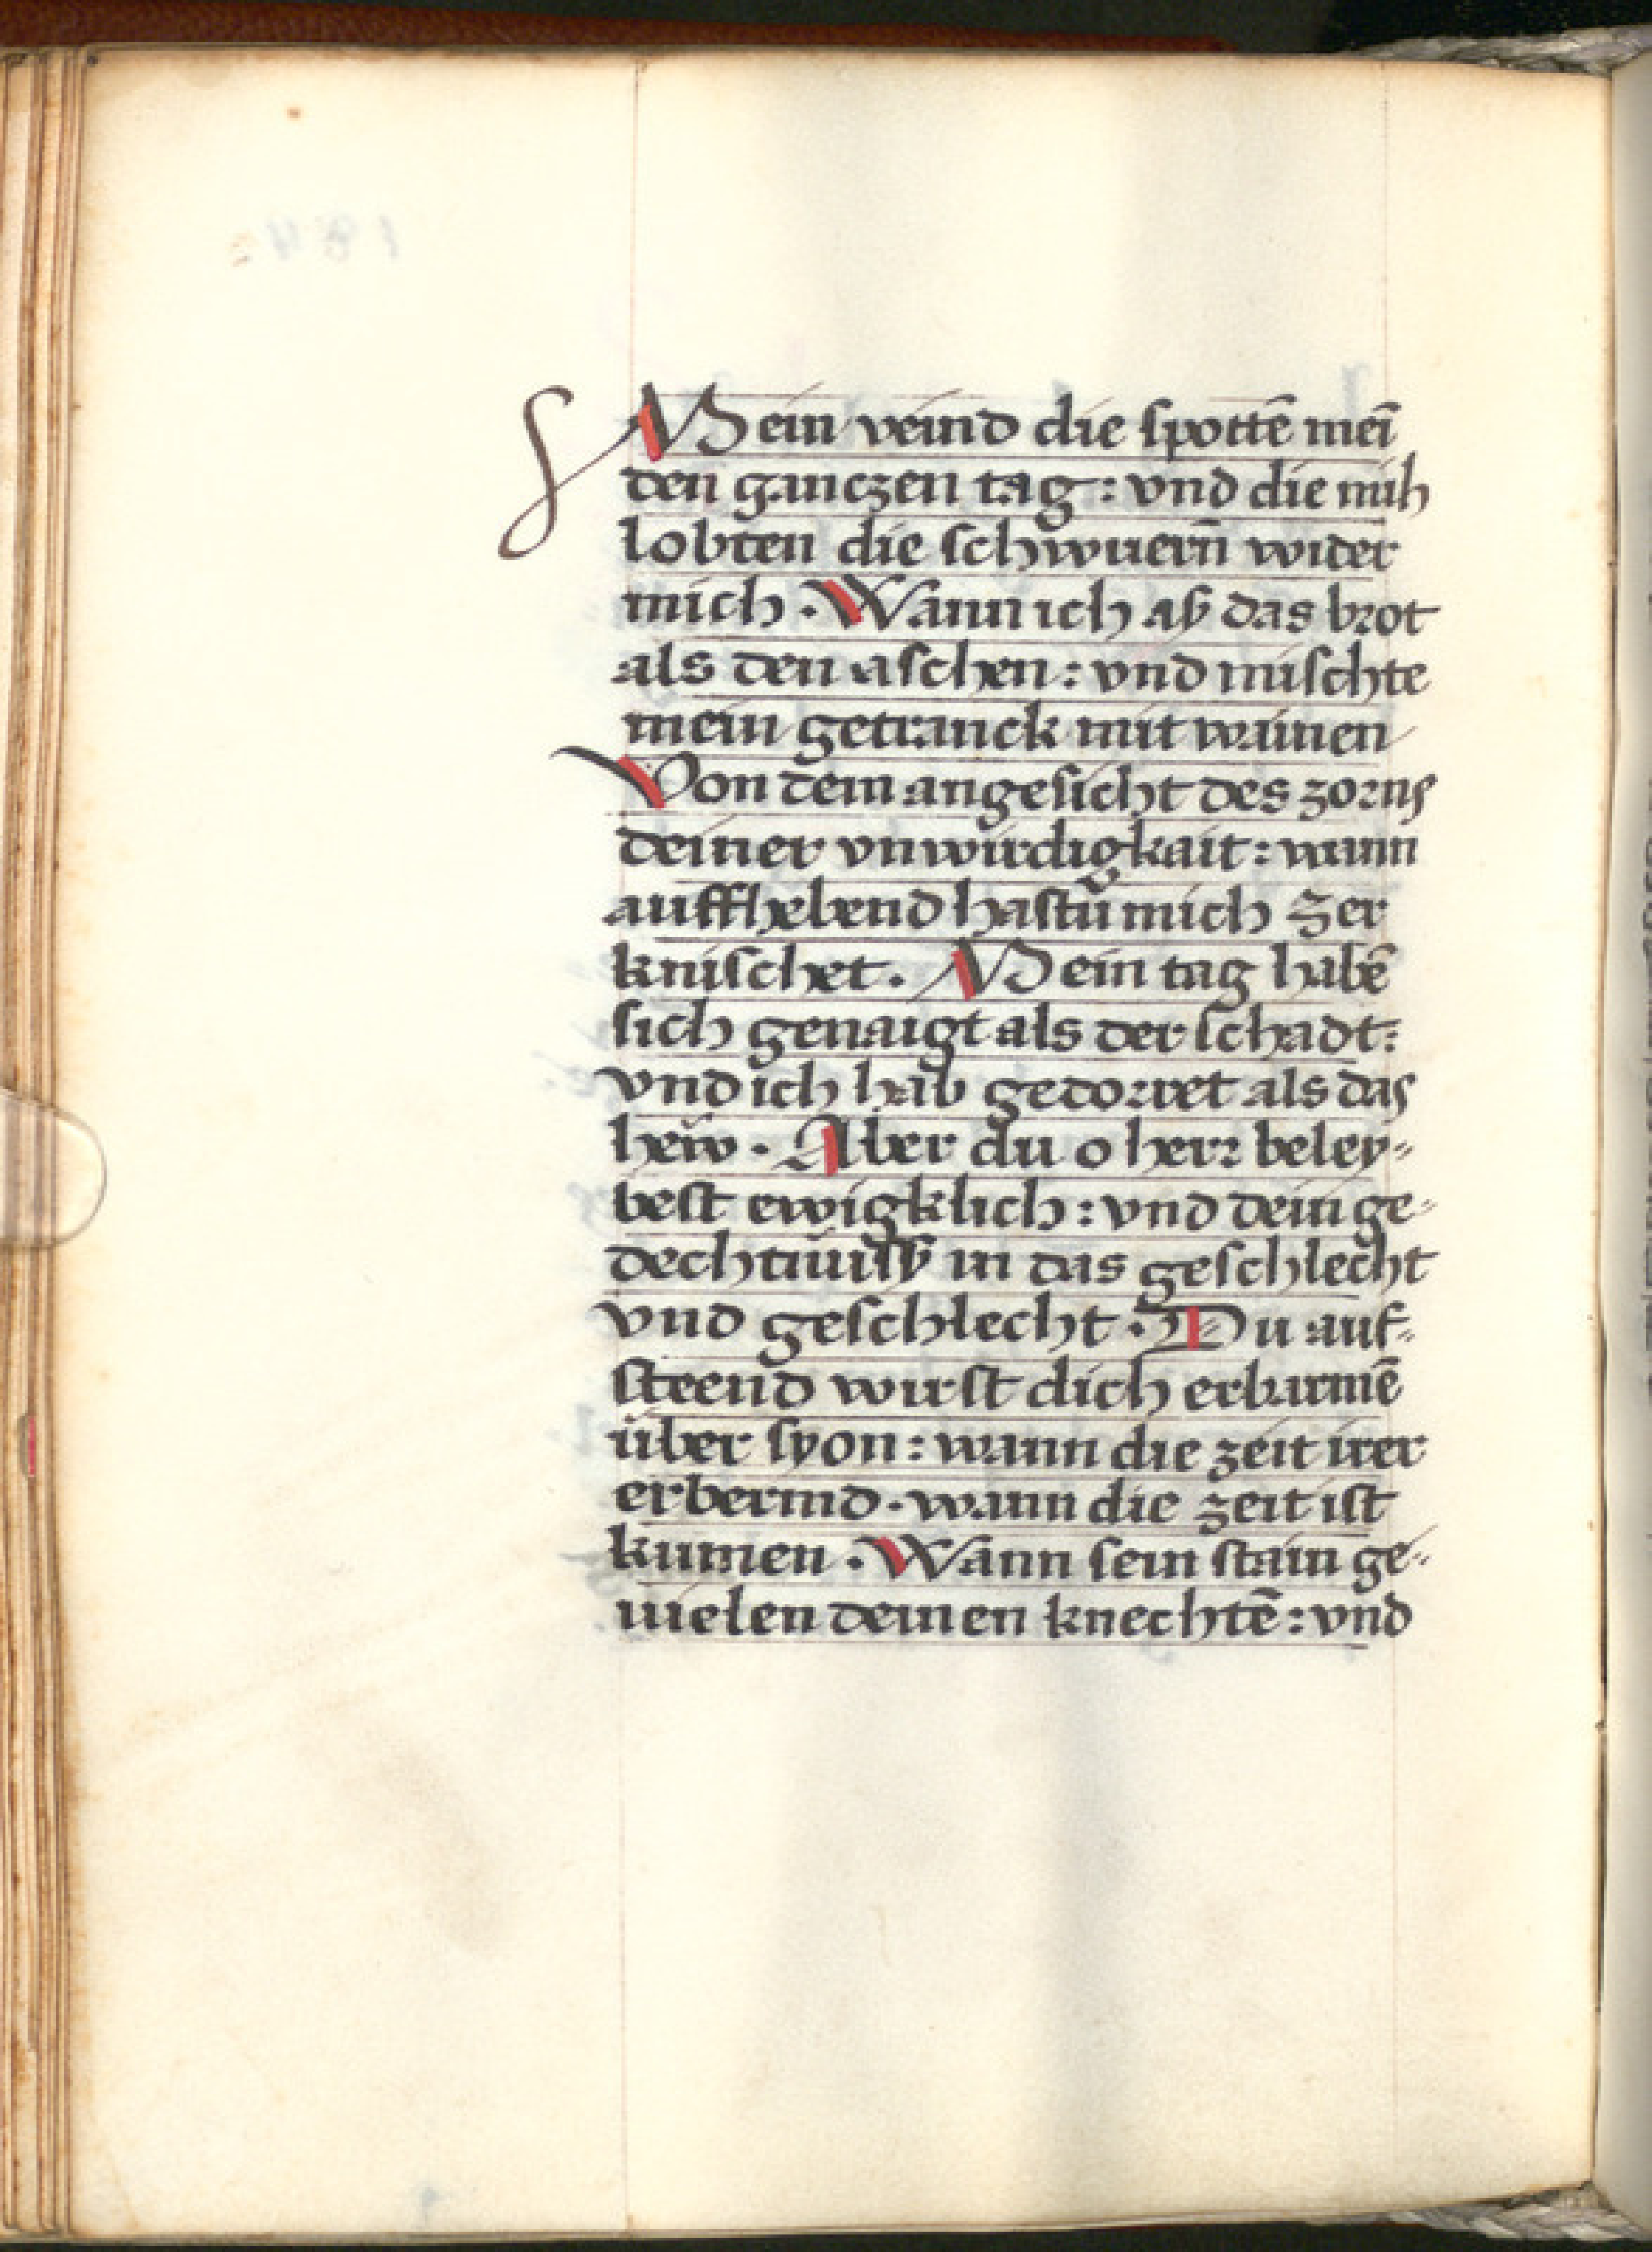 Mein veind die ſpottē meī
den ganczen tag: vnd die mih
lobten die ſchwuern̄ wider
mich · Wann ich aß das brot
als den aſchen: vnd miſchte
mein getranck mit wainen
Von dem angeſicht des zorns
deiner vnwirdigkait: wann
auffhebend haſtu mich zer
kniſchet. Mein tag habē
ſich genaigt als der ſchadt:
vnd ich hab gedorret als das
heẅ · Aber du o herr beley-
beſt ewigklich: vnd dein ge-
dechtnüſß in das geſchlecht
vnd geſchlecht · Du auf-
ſteend wirſt dich erbarmē
über ſyon: wann die zeit irer
erbermd · wann die zeit iſt
kumen · Wann ſein ſtain ge-
uielen deinen knechtē: vnd